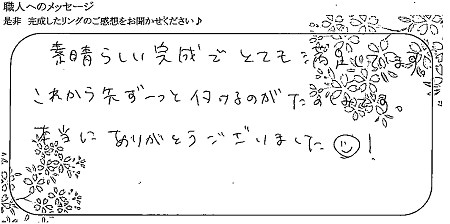 職人へのメッセージ
是非 完成したリングのご感想をお聞かせください♪
素晴らしい完成で とても 満足しています
これから先ず〜っと付けるのが
本当に ありがとうございました☺!